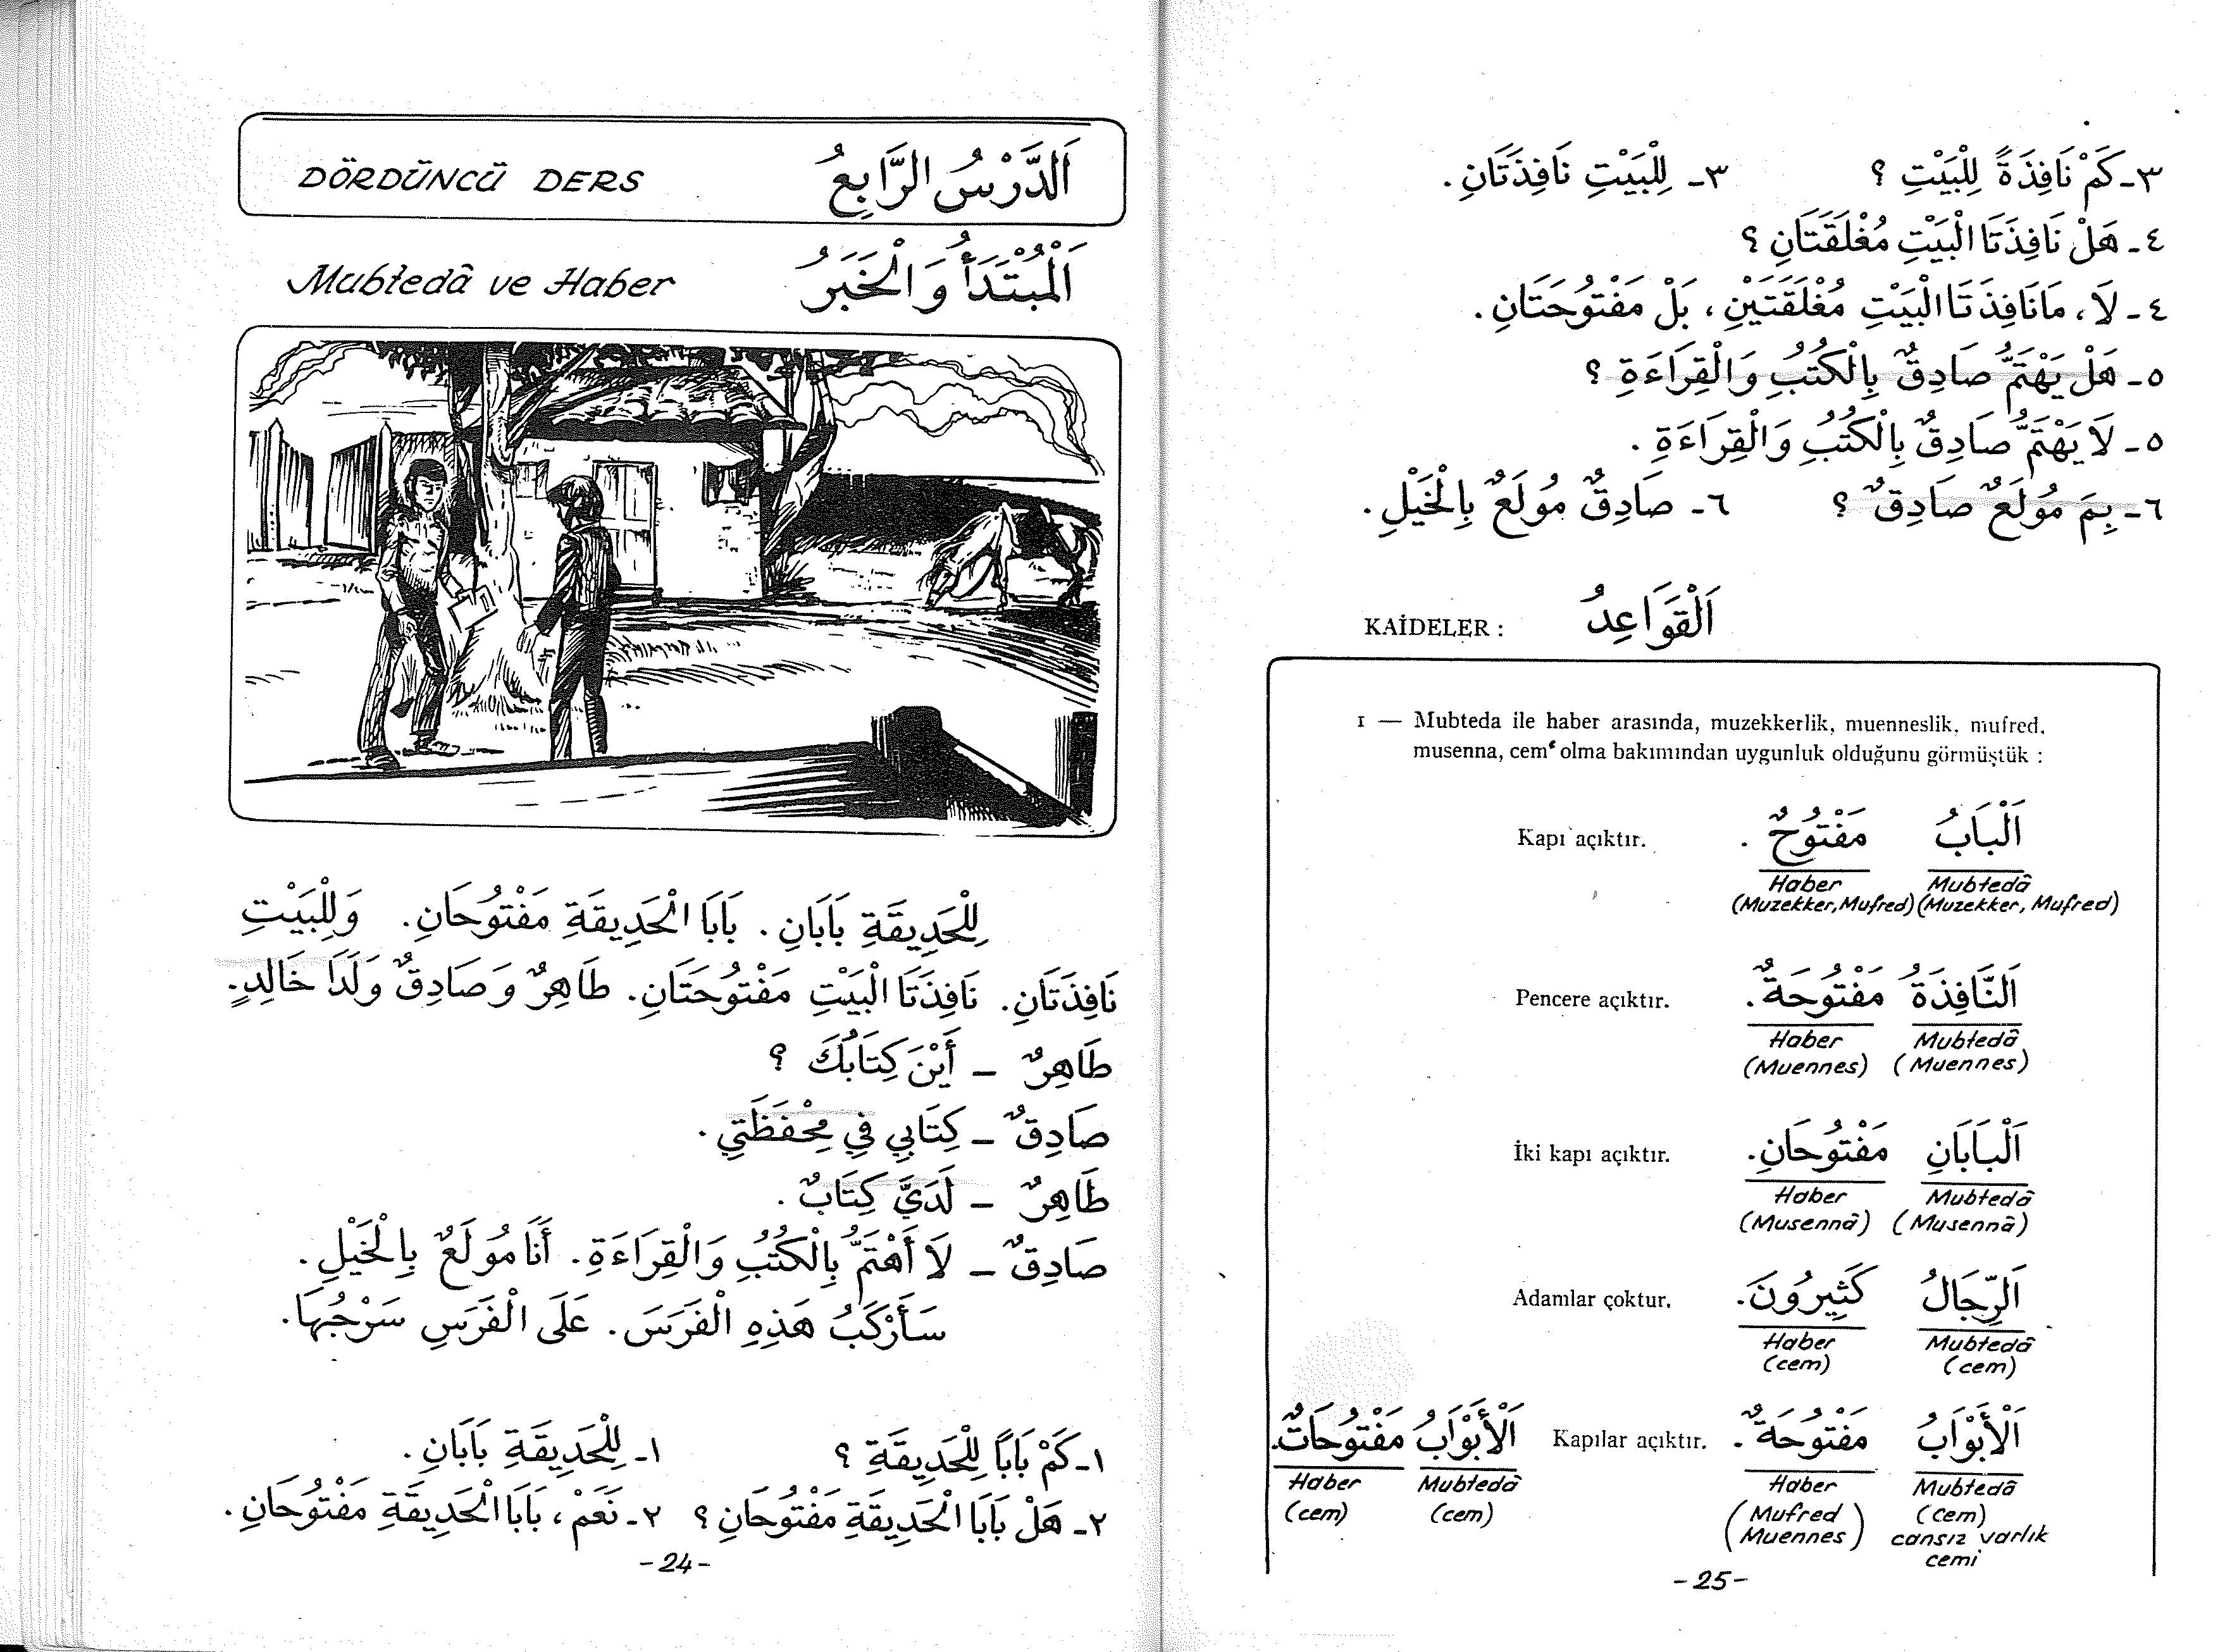 DÖRDÜNCÜ DERS اَلدَّرْسُ الرَّابِعُ
Mubtedâ ve Haber اَلْمُبْتَدَأُ وَالْخَبَرُ
لِلْحَدِيقَةِ بَابَانِ. بَابَا الْحَدِيقَةِ مَفْتُوحَانِ. وَلِلْبَيْتِ
نَافِذَتَانِ. نَافِذَتَا الْبَيْتِ مَفْتُوحَتَانِ. طَاهِرٌ وَصَادِقٌ وَلَدَا خَالِدٍ.
طَاهِرٌ – أَيْنَ كِتَابُكَ ؟
صَادِقٌ – كِتَابِي فِي مِحْفَظَتِي.
طَاهِرٌ – لَدَيَّ كِتَابٌ.
صَادِقٌ – لَا أَهْتَمُّ بِالْكُتُبِ وَالْقِرَاءَةِ. أَنَا مُولَعٌ بِالْخَيْلِ.
سَأَرْكَبُ هَذِهِ الْفَرَسَ. عَلَى الْفَرَسِ سَرْجُهَا.
١- كَمْ بَابًا لِلْحَدِيقَةِ ؟ ١- لِلْحَدِيقَةِ بَابَانِ.
٢- هَلْ بَابَا الْحَدِيقَةِ مَفْتُوحَانِ ؟ ٢- نَعَمْ، بَابَا الْحَدِيقَةِ مَفْتُوحَانِ.
-24-
٣- كَمْ نَافِذَةً لِلْبَيْتِ ؟ ٣- لِلْبَيْتِ نَافِذَتَانِ.
٤- هَلْ نَافِذَتَا الْبَيْتِ مُغْلَقَتَانِ ؟
٤- لَا، مَا نَافِذَتَا الْبَيْتِ مُغْلَقَتَيْنِ، بَلْ مَفْتُوحَتَانِ.
٥- هَلْ يَهْتَمُّ صَادِقٌ بِالْكُتُبِ وَالْقِرَاءَةِ ؟
٥- لَا يَهْتَمُّ صَادِقٌ بِالْكُتُبِ وَالْقِرَاءَةِ.
٦- بِمَ مُولَعٌ صَادِقٌ ؟ ٦- صَادِقٌ مُولَعٌ بِالْخَيْلِ.
KAİDELER : اَلْقَوَاعِدُ
1 — Mubteda ile haber arasında, muzekkerlik, muenneslik, mufred,
musenna, cemʿ olma bakımından uygunluk olduğunu görmüştük :
Kapı açıktır. اَلْبَابُ مَفْتُوحٌ.
Haber Mubtedâ
(Muzekker, Mufred) (Muzekker, Mufred)
Pencere açıktır. اَلنَّافِذَةُ مَفْتُوحَةٌ.
Haber Mubtedâ
(Muennes) (Muennes)
İki kapı açıktır. اَلْبَابَانِ مَفْتُوحَانِ.
Haber Mubtedâ
(Musennâ) (Musennâ)
Adamlar çoktur. اَلرِّجَالُ كَثِيرُونَ.
Haber Mubtedâ
(cem) (cem)
اَلْأَبْوَابُ مَفْتُوحَاتٌ. Kapılar açıktır. اَلْأَبْوَابُ مَفْتُوحَةٌ.
Haber Mubtedâ Haber Mubtedâ
(cem) (cem) (Mufred (cem)
Muennes) cansız varlık
cemi
-25-